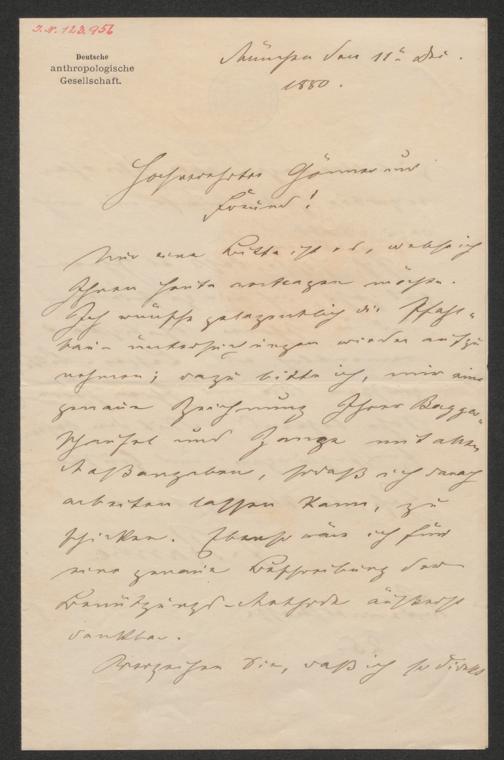 I.N. 123.956
Deutsche
anthropologische
Gesellschaft.
München den 11ⁿ Dec.
1880.
Hochverehrter Gönner und
Freund!
Nur eine Bitte ist es, welche ich
Ihnen heute vortragen möchte.
Ich wünsche gelegentlich die Pfahl-
bau-untersuchungen wieder aufzu
nehmen; dazu bitte ich, mir eine
genaue Zeichnung Ihrer Bagger-
schaufel und Zange mit allen
Maßangaben, sodaß ich danach
arbeiten lassen kann, zu
schicken. Ebenso wäre ich für
eine genaue Beschreibung der
Benützungs-Methode äußerst
dankbar.
Verzeihen Sie, daß ich so direkt